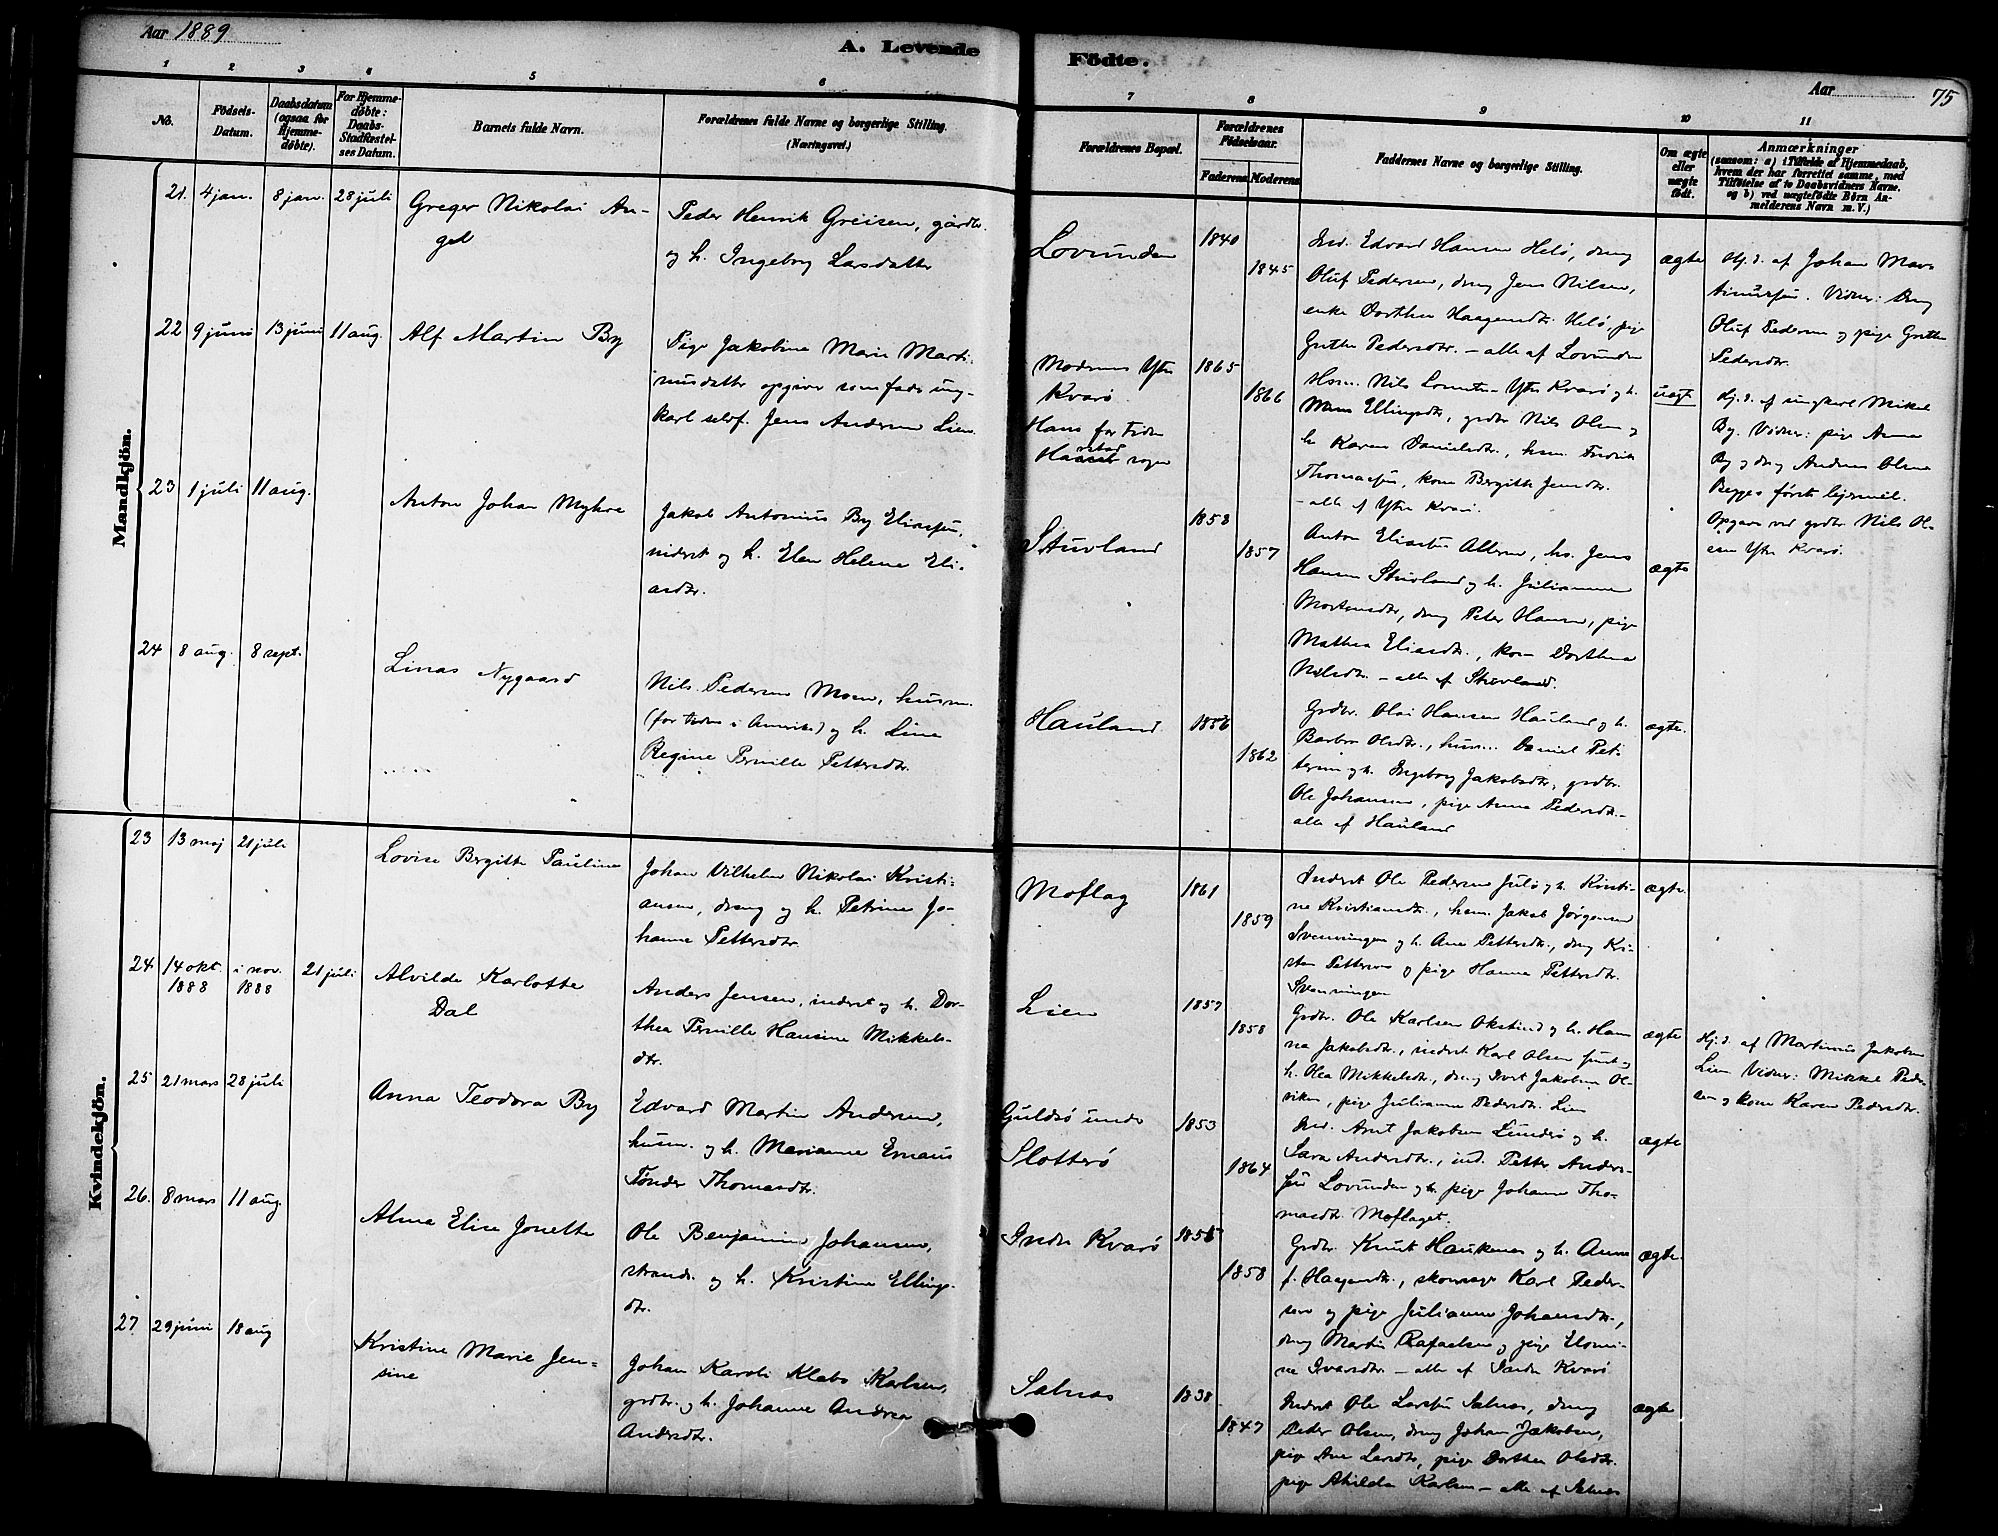 Aar 1889
A. Levende
Födte.
Aar
75
1 2 3 4 5 6 7 8 9 10 11
No.
Födsels-
Datum.
Daabsdatum
(ogsaa for
Hjemme-
døbte).
For Hjemme-
døbte:
Daabs-
Stadfæstel-
ses Datum.
Barnets fulde Navn.
Forældrenes fulde Navne og borgerlige Stilling.
(Næringsvei.)
Forældrenes Bopæl.
Forældrenes
Födselsaar.
Faderens Moderens
Faddernes Navne og borgerlige Stilling.
Om ægte
eller
uægte
født.
Anmærkninger
(saasom: a) i Tilfælde af Hjemmedaab,
hvem der har forrettet samme, med
Tilföielse af to Daabsvidners Navne.
og b) ved uægtefödte Börn An-
melderens Navn m.V.)
Mandkjön.
21. 4 jan. 8 jan. 28 juli
Greger Nikolai An-
gel
Peder Henrik Greisen, gårdbr.
og h. Ingeborg Larsdatter
Lovunden
1840
1845
Ind. Edvard Hansen Helø, dreng
Oluf Pedersen, dreng Jens Nilsen,
enke Dorthea Haagensdtr. Helø, pige
Grethe Pedersdtr. – alle af Lovunden
ægte
Hj.d. af Johan Mar-
tinussen. Vidner: Dreng
Oluf Pedersen og pige Grethe
Pedersdtr.
22 9 juni 13 juni 11 aug.
Alf Martin By
Pige Jakobine Marie Marti-
nusdatter opgiver som fader ung-
karl selvf. Jens Andersen Lien.
Moderens Ytre
Kvarø.
Hans for Tiden
stad
sogn
1865
1866
Hsm. Nils Ytre Kvarø og h.
Ellingsdtr., grdbr Nils Olsen og
h. Karen Danielsdtr., hsm. Fredrik
Thomassen, kone Bergitte Jensdtr.
– alle af Ytre Kvarø.
uægte
Hj.d. af ungkarl Mikal
By. Vidner: pige Anna
By og dreng Andreas Olsen
Begges første lejermål.
Opgave ved grdbr Nils Ol-
sen Ytre Kvarø.
23 1 juli 11 aug.
Anton Johan Myhre
Jakob Antonius By Eliassen,
inderst og h. Elen Helene Eli-
asdtr.
Stuvland
1858
1857
Anton Eliassen Alteren, hs. Jens
Hansen Stuvland og h. Julianna
Mortensdtr, dreng Peter Hansen, pige
Mathea Eliasdtr., kone Dorthea
Nilsdtr. – alle af Stuvland.
ægte
24 8 aug. 8 sept.
Linas Nygaard
Nils Pedersen Moen, husm.
(for tiden i Amerika) og h. Line
Regine Pernille Pettersdtr.
Hauland
1856
1862
Grdbr. Olai Hansen Hauland og h.
Barbra Olsdtr., husm. Daniel Pet-
tersen og h. Ingeborg Jakobsdtr, grdbr.
Ole Johansen, pige Anna Pedersdtr. –
alle af Hauland
ægte.
Kvindekjön.
23 13 maj 21 juli
Lovise Bergitte Pauline
Johan Vilhelm Nikolai Kristi-
ansen, dreng og h. Petrine Jo-
hanne Pettersdtr.
Moflag
1861
1859
Inderst Ole Pedersen Julø og h. Kristi-
ne Kristiansdtr., hsm. Jakob Jørgensen
Svenningen og h. Ane Pettersdtr., dreng Kri-
sten Pettersen og pige Hanna Pettersdtr.
Svenningen
ægte.
24 14 okt. 1888 i nov. 1888 21 juli
Alvilde Karlotte
Dal
Anders Jensen, inderst og h. Dor-
thea Pernille Hansine Mikkels-
dtr.
Lien
1857
1858
Grdbr. Ole Karlsen Okstind og h. Han-
na Jakobsdtr., inderst Karl Olsen og
h. Olea Mikkelsdtr., dreng Jakobsen Ol-
viken, pige Julianna Pedersdtr. Lien
ægte
Hj.d. af Martinus Jakobsen
Lien Vidner: Mikkel Peder-
sen og kone Karen Pedersdtr.
25 21 mars 28 juli
Anna Teodora By
Edvard Martin Andersen,
husm. og h. Marianne Emaus
Tønder Thomasdtr.
Guldsø under
Slotterø
1853
1864
Ind. Arnt Jakobsen Lunderø og h.
Sara Andersdtr., ind. Petter Anders-
sen Lovunden og h. pige Johanna Tho-
masdtr. Moflaget.
ægte
26. 8 mars 11 aug.
Alma Elise Jonette
Ole Benjamin Johansen,
strands. og h. Kristine Ellings-
dtr.
Indre Kvarø
1855
1858
Grdbr. Knut Haukenes og h. Anne
f. Haagensdtr., skomager Karl Peder-
sen og pige Julianna Johansdtr.,
dreng Martin Rafaelsen og pige Elomi-
ne Ivarsdtr. – alle af Indre Kvarø
ægte.
27 29 juni 18 aug
Kristine Marie Jen-
sine
Johan Karoli Klebo Karlsen,
grdbr. og h. Johanne Andrea
Andersdtr.
Selnes
1838
1847
Inderst Ole Larssen Selnes, dreng
Peder Olsen, dreng Johan Jakobsen,
pige Ane Larsdtr, pige Dorthea Olsdtr.
pige Alvilda Karlsen – alle af Selnes
ægte